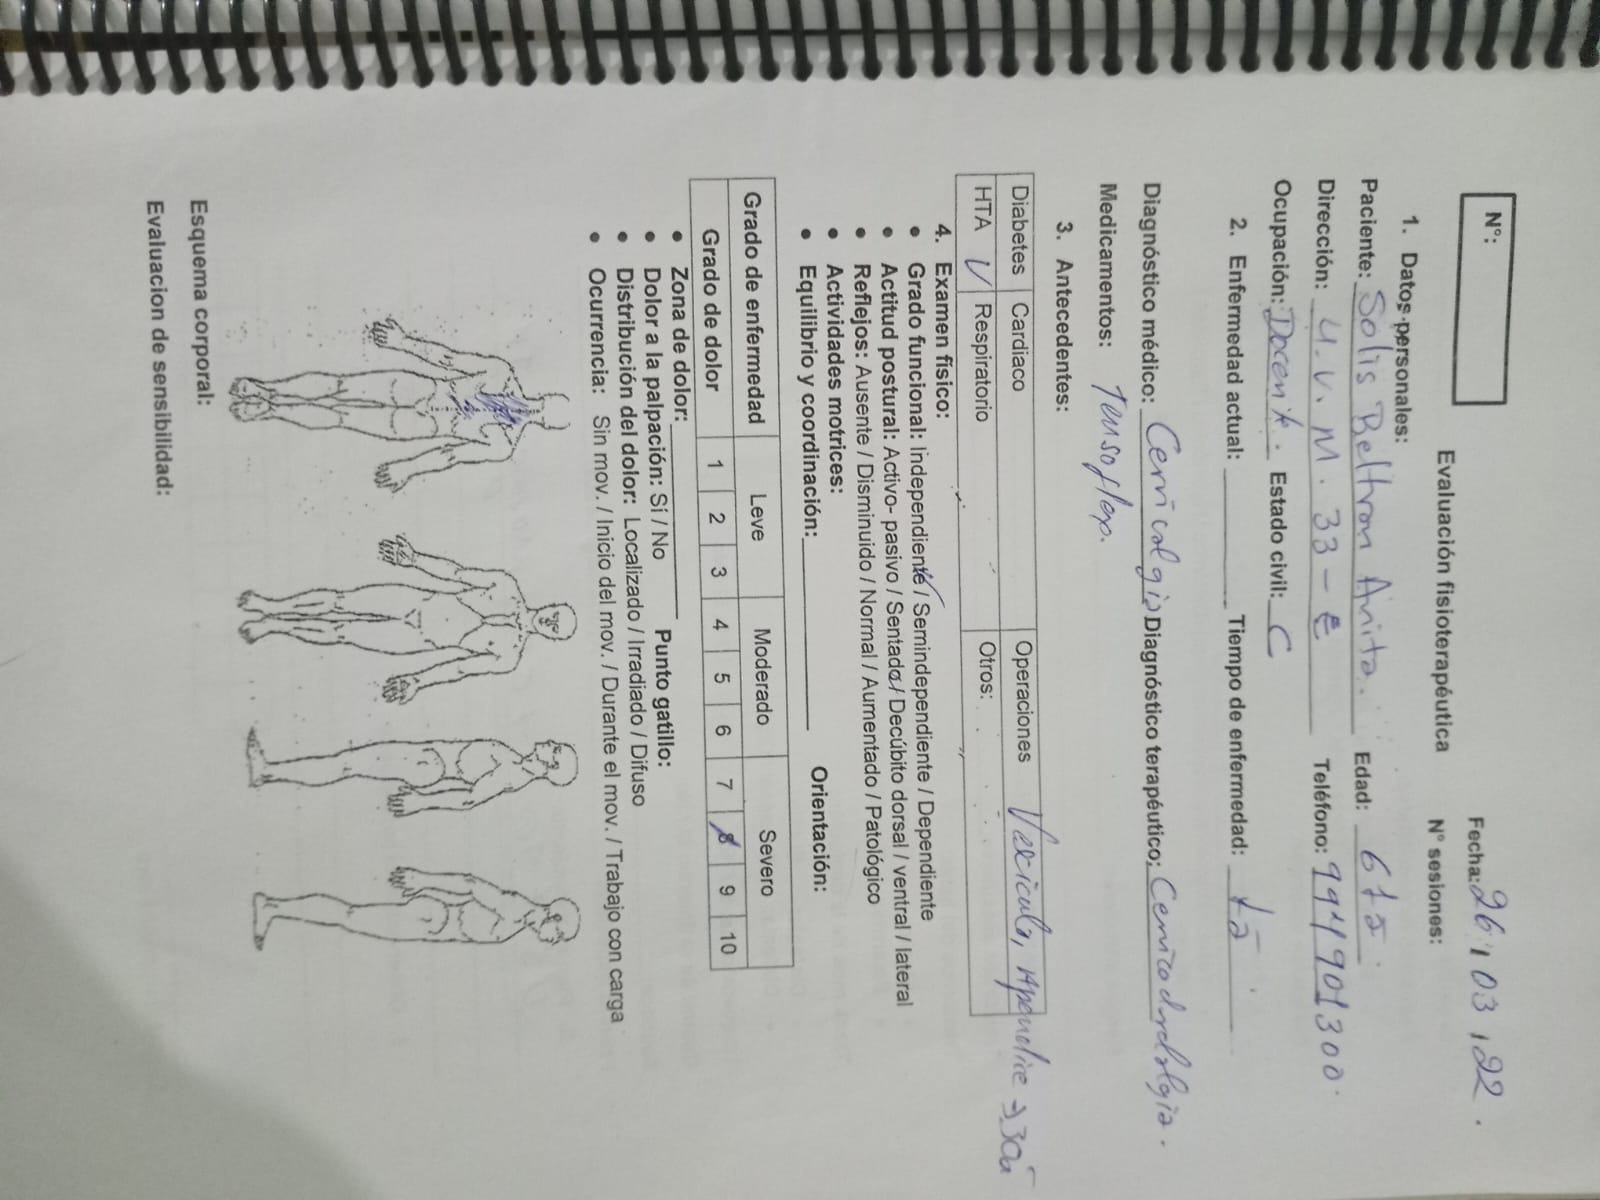 N°:
Fecha: 26 / 03 / 22.
Evaluación fisioterapéutica
N° sesiones:
1. Datos personales:
Paciente: Solis Beltran Anita. Edad: 61 a
Dirección: U.V.M. 33 - E Teléfono: 994901300
Ocupación: Docente. Estado civil: C
2. Enfermedad actual: Tiempo de enfermedad: 1 a
Diagnóstico médico: Cervicalgia Diagnóstico terapéutico: Cervicodorsalgia.
Medicamentos: Tensoflex.
3. Antecedentes:
Diabetes Cardiaco Operaciones Vesicula, Apendice → 30a
HTA ✓ Respiratorio Otros:
4. Examen físico:
• Grado funcional: Independiente / Semindependiente / Dependiente
• Actitud postural: Activo- pasivo / Sentado / Decúbito dorsal / ventral / lateral
• Reflejos: Ausente / Disminuido / Normal / Aumentado / Patológico
• Actividades motrices:
• Equilibrio y coordinación: Orientación:
Grado de enfermedad Leve Moderado Severo
Grado de dolor 1 2 3 4 5 6 7 8 9 10
• Zona de dolor:
• Dolor a la palpación: Sí / No Punto gatillo:
• Distribución del dolor: Localizado / Irradiado / Difuso
• Ocurrencia: Sin mov. / Inicio del mov. / Durante el mov. / Trabajo con carga
Esquema corporal:
Evaluacion de sensibilidad: